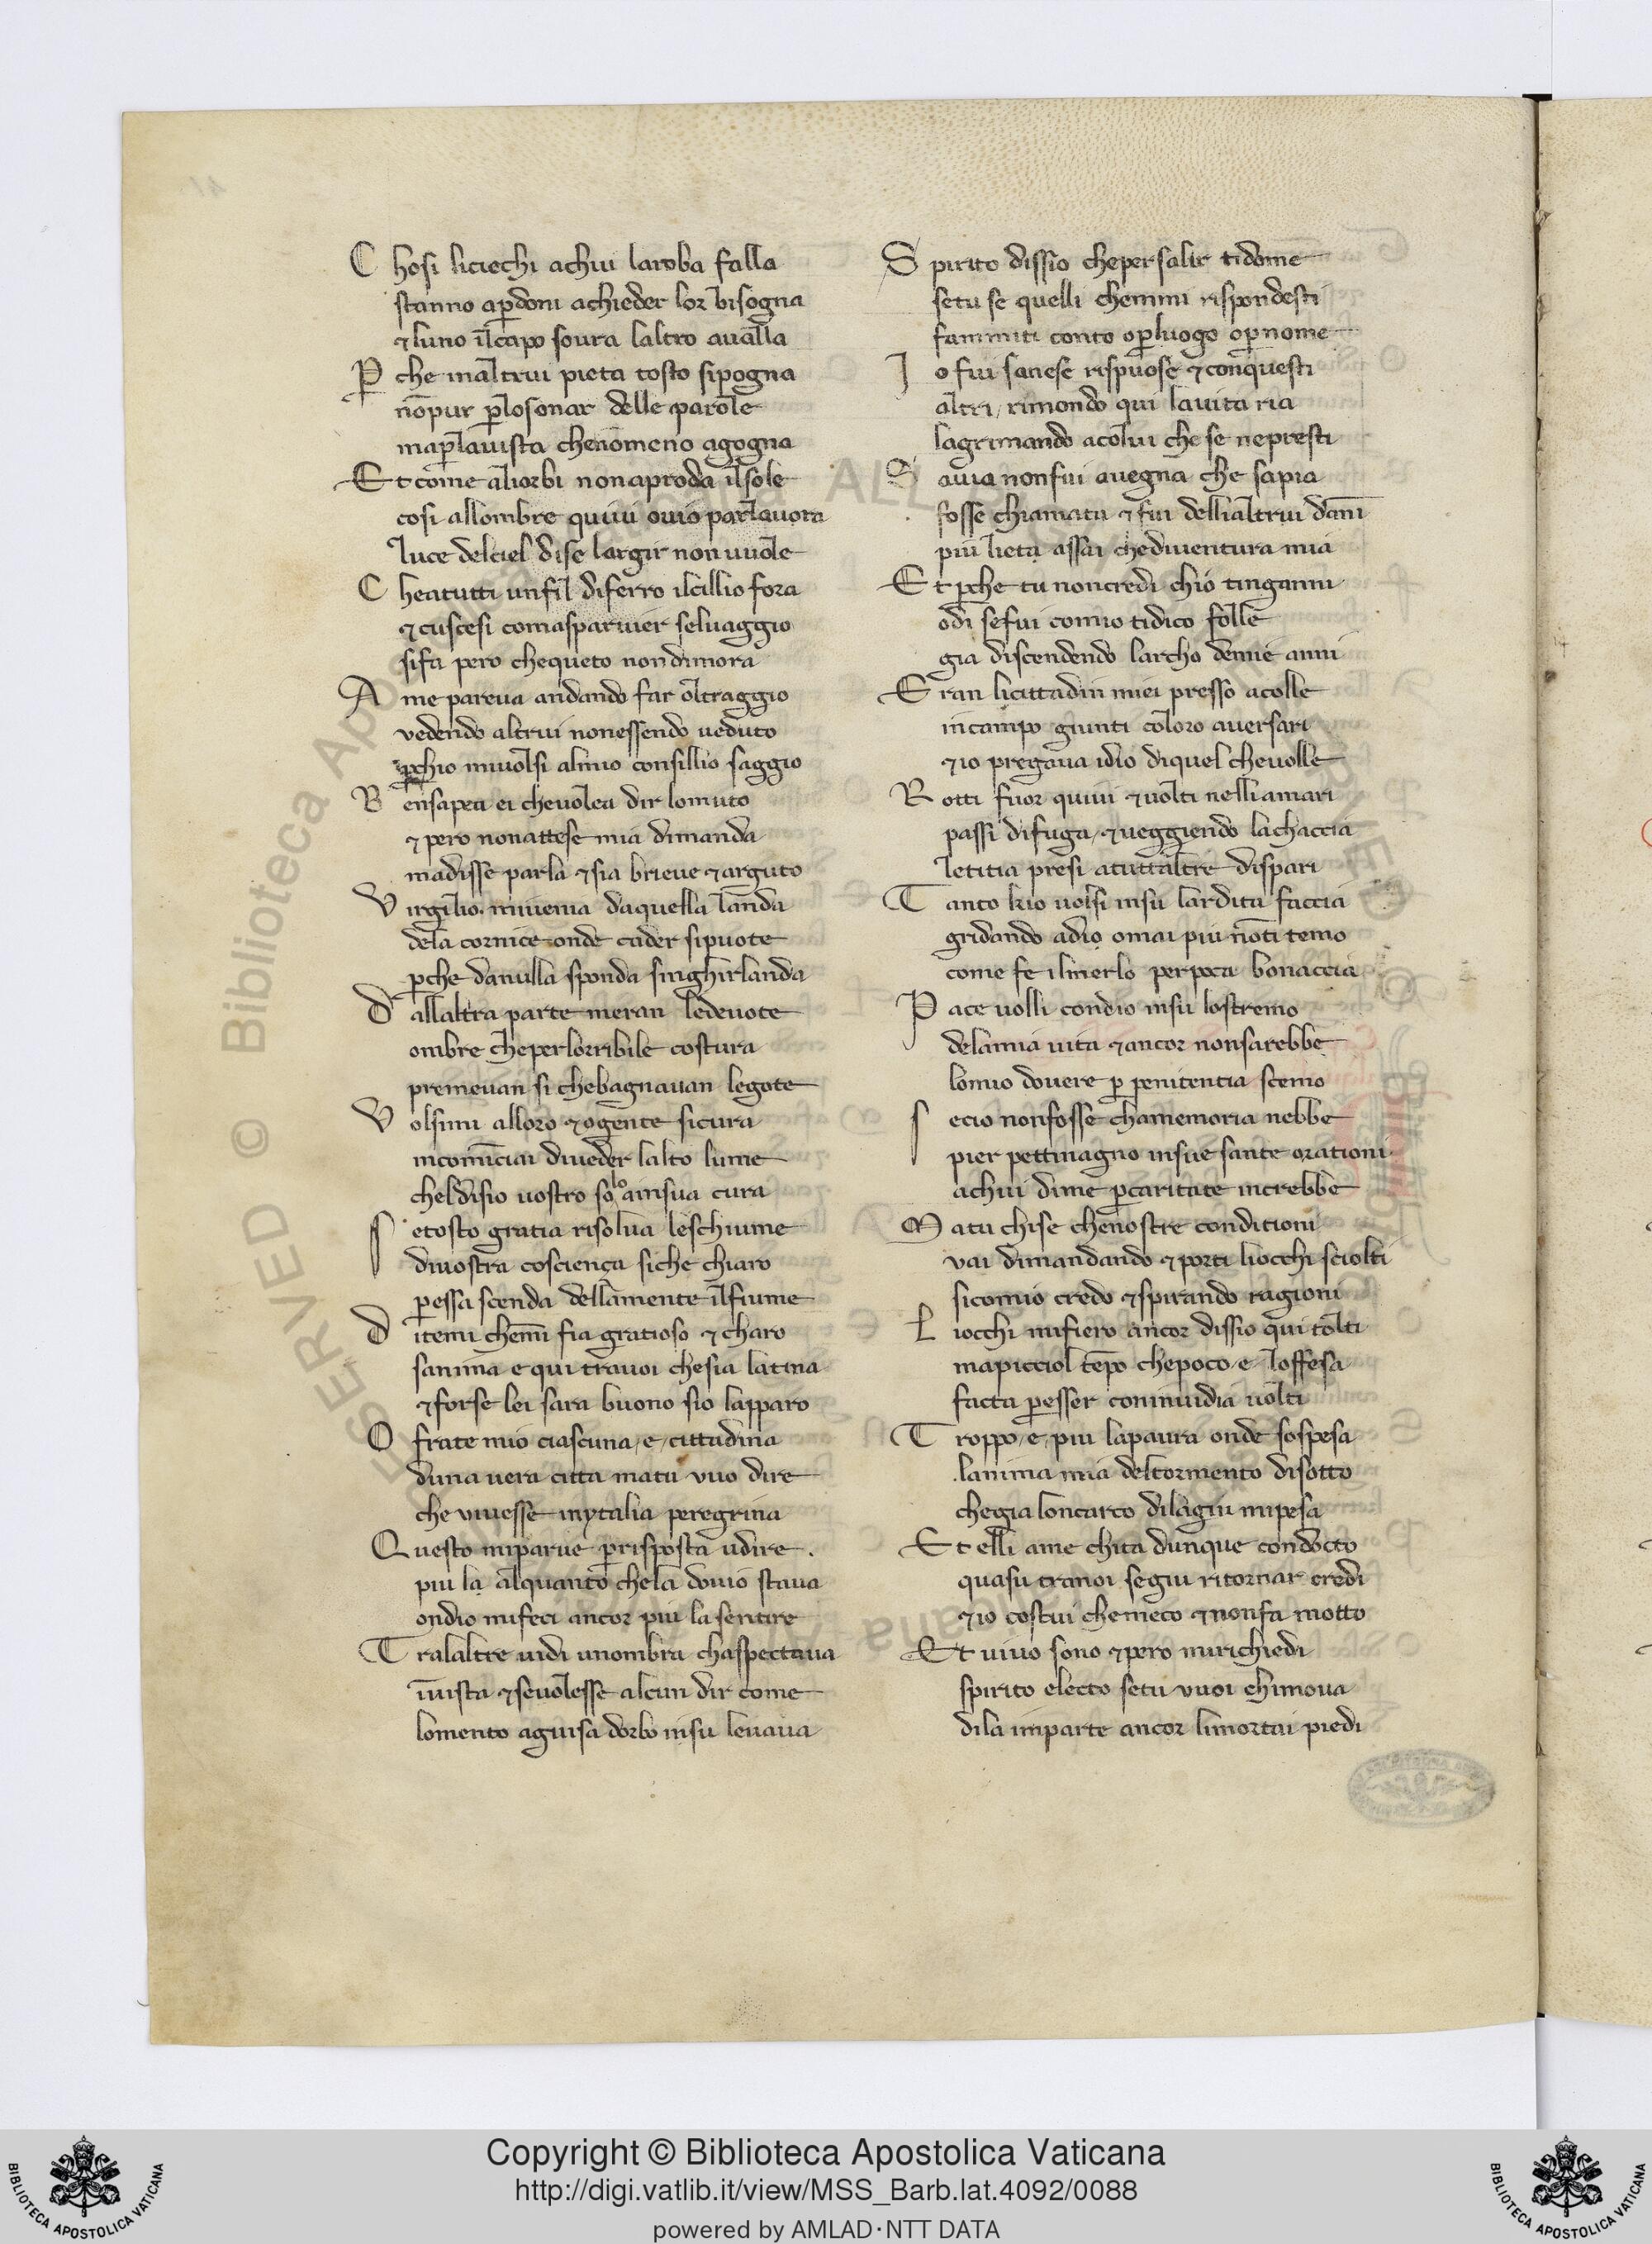 Chosi liciechi achui laroba falla
stanno aꝑdoni achieder lor bisogna
⁊luno ilcapo soura laltro aualla
P̱che inaltrui pieta tosto sipogna
nōpur ꝑlosonar delle parole
maꝑlauista chenōmeno agogna
Et come aliorbi nonaproda ilsole
cosi allombre quiui ouio parlauora
luce delciel dise largir non uuole
Cheatutti unfil diferro ilcillio fora
⁊cuscesi comasparuier seluaggio
sifa pero chequeto nondimora
Ame pareua andando far oltraggio
vedendo altrui nonessendo ueduto
ꝑchio miuolsi almio consillio saggio
Bensapea ei cheuolea dir lomuto
⁊pero nonattese mia dimanda
madisse parla ⁊sia brieue ⁊arguto
Virgilio miuenia daquella banda
dela cornice onde cader sipuote
ꝑche danulla sponda singhirlanda
dallaltra parte meran ledeuote
ombre cheperlorribile costura
premeuan si chebagnauan legote
Volsimi alloro ⁊ogente sicura
incomīciai diueder lalto lume
cheldisio uostro solo ainsua cura
setosto gratia risolua leschiume
diuostra cosciença siche chiaro
ꝑessa scenda dellamente ilfiume
ditemi chemī fia gratioso ⁊charo
sanima e qui trauoi chesia latina
⁊forse lei sara buono sio lapparo
O frate mio ciascuna e cittadina
duna uera citta matu vuo dire
che viuesse inytalia peregrina
Questo miparue ꝑrisposta udire.
piu la alquanto chela douio staua
ondio mifeci ancor piu la sentire
Tralaltre uidi unombra chaspectaua
īuista ⁊seuolesse alcun dir come
lomento aguisa dorbo insu leuaua
Spirito dissio chepersalir tidome
setu se quelli chemmi rispondesti
fammiti conto oꝑluogo oꝑnome
Io fui sanese rispuose ⁊conquesti
altri, rimondo qui lauita ria
lagrimando acolui che se nepresti
Sauia nonfui auegna che sapia
fosse chiamata ⁊fui dellialtrui dāni
piu lieta assai chediuentura mia
Et ꝑche tu noncredi chio tinganni
odi sefui comio tidico folle
gia discendendo larcho demie anni
Eran licittadin miei presso acolle
incampo giunti coloro auersari
⁊io pregaua idio diquel cheuolle
Rotti fuor quiui ⁊uolti nelliamari
passi difuga, ⁊ueggiendo lachaccia
letitia presi atuttaltre dispari
Tanto kio uolsi insu lardita faccia
gridando adio omai piu nōti temo
come fe ilmerlo perpoca bonaccia
Pace uolli condio insu lostremo
delamia uita ⁊ancor nonsarebbe
lomio douere ꝑ penitentia scemo
secio nonfosse chamemoria nebbe
pier pettinagno insue sante orationi
achui dime ꝑcaritate increbbe
Matu chise chenostre conditioni
vai dimandando ⁊porti liocchi sciolti
sicomio credo ⁊spirando ragioni
Liocchi mifiero ancor dissio qui tolti
mapicciol tēpo chepoco, e, loffesa
facta ꝑesser coninuidia uolti
Troppo, e, piu lapaura onde sospesa
.lanima mia deltormento disotto
chegia loncarco dilagiu mipesa
Et elli ame chita dunque condocto
quasu tranoi segiu ritornar credi
⁊io costui chemeco ⁊nonfa motto
Et uiuo sono ⁊pero mirichiedi
spirito electo setu vuoi chimoua
dila imparte ancor limortai piedi
Copyright © Biblioteca Apostolica Vaticana
http://digi.vatlib.it/view/MSS_Barb.lat.4092/0088
powered by AMLAD·NTT DATA